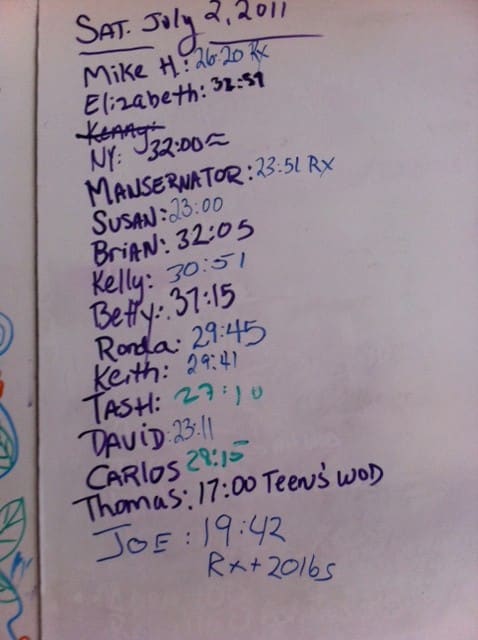 SAT. July 2, 2011
Mike H: 26:20 Rx
Elizabeth: 32:59
Kenny:
NY: 32:00≈
MANSERNATOR: 23:51 Rx
SUSAN: 23:00
BriAN: 32:05
Kelly: 30:51
Betty: 37:15
Ronda: 29:45
Keith: 29:41
TASH: 27:10
DAVID: 23:11
CARLOS 29:15
Thomas: 17:00 Teen's WOD
JOE: 19:42
Rx + 20lbs